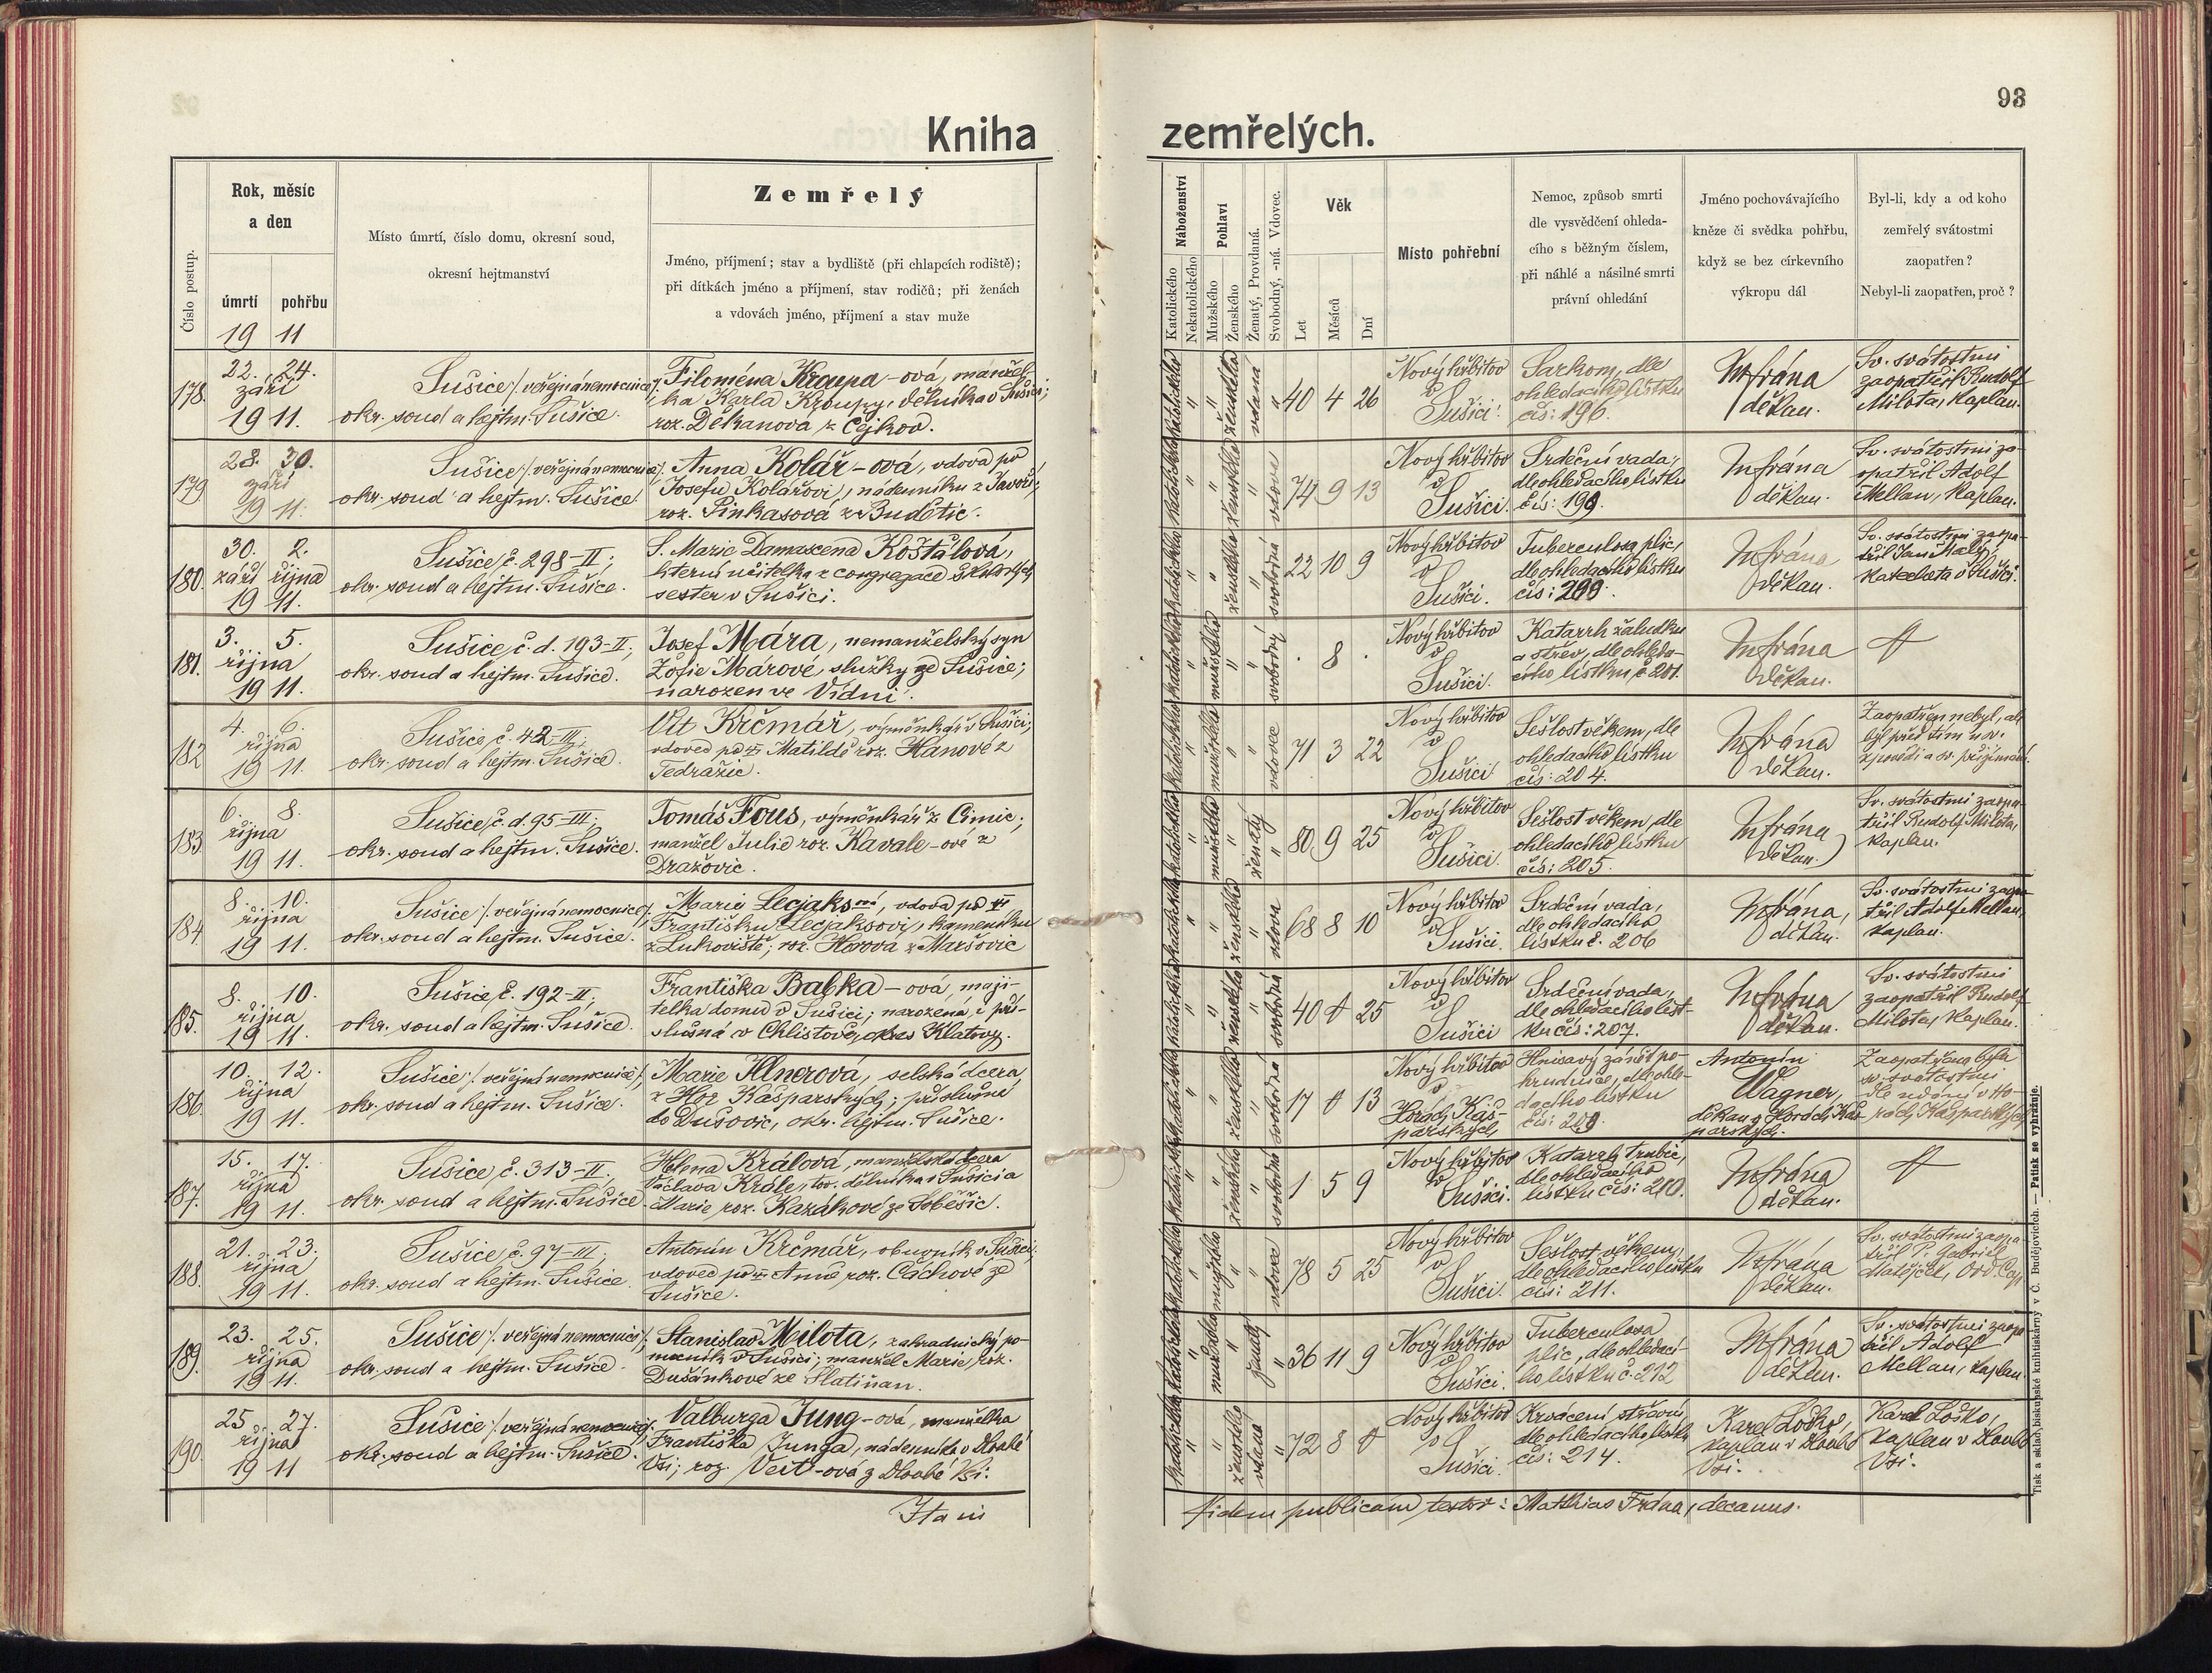 93
Kniha zemřelých.
Číslo postup.
Rok, měsíc
a den
úmrtí pohřbu
19 11
Místo úmrtí, číslo domu, okresní soud,
okresní hejtmanství
Zemřelý
Jméno, příjmení; stav a bydliště (při chlapcích rodiště);
při dítkách jméno a příjmení, stav rodičů; při ženách
a vdovách jméno, příjmení a stav muže
Náboženství
Katolického
Nekatolického
Pohlaví
Mužského
Ženského
Ženatý, Provdaná.
Svobodný, -ná. Vdovec.
Věk
Let
Měsíců
Dní
Místo pohřební
Nemoc, způsob smrti
dle vysvědčení ohleda-
cího s běžným číslem,
při náhlé a násilné smrti
právní ohledání
Jméno pochovávajícího
kněze či svědka pohřbu,
když se bez církevního
výkropu dál
Byl-li, kdy a od koho
zemřelý svátostmi
zaopatřen?
Nebyl-li zaopatřen, proč?
178.
22. 24.
září
19 11.
Sušice /. veřejná nemocnice /.
okr. soud a hejtm. Sušice.
Filoména Kroupa-ová, manžel-
ka Karla Kroupy, dělníka v Sušici;
roz. Děkanova z Čejkov.
katolického
ženského
vdaná
40 4 26
Nový hřbitov
v
Sušici.
Sarkom, dle
ohledacího lístku
čís: 196.
M Frána
děkan.
Sv. svátostmi
zaopatřil Rudolf
Milota, kaplan.
179
28. 30.
září
19 11.
Sušice /. veřejná nemocnice /.
okr. soud a hejtm. Sušice.
Anna Kolář-ová, vdova po
Josefu Kolářovi, nádenníku z
roz. Pinkasová z Budětic.
katolického
ženského
vdova
74 9 13
Nový hřbitov
v
Sušici.
Srdeční vada,
dle ohledacího lístku
čís: 199.
M Frána
děkan.
Sv. svátostmi za-
opatřil Adolf
Mellan, kaplan.
180.
30. 2.
září října
19 11.
Sušice, č. 298-II;
okr. soud a hejtm. Sušice.
S. Marie Damascena Košťálová,
učitelka z congregace školských
sester v Sušici.
katolického
ženského
svobodná
22 10 9
Nový hřbitov
v
Sušici.
Tuberculosa plic,
dle ohledacího lístku
čís: 200.
M Frána
děkan.
Sv. svátostmi zaopa-
třil Jan Malý,
katecheta v Sušici.
181.
3. 5.
října
19 11.
Sušice, č. d. 193-II;
okr. soud a hejtm. Sušice.
Josef Mára, nemanželský syn
Žofie Márové, služky ze Sušice;
narozen ve Vídni.
katolického
mužského
svobodný
. 8 .
Nový hřbitov
v
Sušici.
Katarrh žaludku
a střev, dle ohleda-
cího lístku, č. 201.
M Frána
děkan.
182
4. 6.
října
19 11.
Sušice, č. 42-III;
okr. soud a hejtm. Sušice.
Vít Krčmář, výměnkář v Sušici;
vdovec po Matildě roz. Hanové z
Tedražic.
katolického
mužského
vdovec
71 3 22
Nový hřbitov
v
Sušici
Sešlost věkem, dle
ohledacího lístku
čís: 204.
M Frána
děkan.
Zaopatřen nebyl, ale
byl před tím u sv.
zpovědi a sv. přijímání.
183
6. 8.
října
19 11.
Sušice, č. d. 95-III;
okr. soud a hejtm. Sušice.
Tomáš Fous, výměnkář z Čimic;
manžel Julie roz. Kavale-ové z
Dražovic.
katolického
mužského
ženatý
80 9 25
Nový hřbitov
v
Sušici.
Sešlost věkem, dle
ohledacího lístku
čís: 205.
M Frána
děkan.
Sv. svátostmi zaopa-
třil Rudolf Milota,
kaplan.
184
8. 10.
října
19 11.
Sušice /. veřejná nemocnice /.
okr. soud a hejtm. Sušice.
Marie Lecjaksová, vdova po
Františku Lecjaksovi, kameníku
z Lukoviště; roz. Horova z Maršovic
katolického
ženského
vdova
68 8 10
Nový hřbitov
v
Sušici.
Srdeční vada,
dle ohledacího
lístku č. 206
M Frána,
děkan.
Sv. svátostmi zaopa-
třil Adolf Mellan,
kaplan.
185.
8. 10.
října
19 11.
Sušice, č. 192-II;
okr. soud a hejtm. Sušice.
Františka Babka-ová, maji-
telka domu v Sušici; narozená i pří-
slušná v Chlistově, okres Klatovy.
katolického
ženského
svobodná
40 0 25
Nový hřbitov
v
Sušici
Srdeční vada,
dle ohledacího líst-
ku čís: 207.
M Frána
děkan.
Sv. svátostmi
zaopatřil Rudolf
Milota, kaplan.
186.
10. 12.
října
19 11.
Sušice /. veřejná nemocnice /.
okr. soud a hejtm. Sušice.
Marie selská dcera
z Hor Kašparských; příslušná
do Dušovic, okr. hejtm. Sušice.
katolického
ženského
svobodná
17 0 13
Nový hřbitov
v
Horách Kaš-
parských
Hnisavý zánět po-
hrudnice, dle ohle-
dacího lístku
Antonín
Wagner,
děkan v Horách Kaš-
parských.
Zaopatřena byla
sv. svátostmi
dle udání v Ho-
rách Kašparských.
187.
15. 17.
října
19 11.
Sušice, č. 313-II;
okr. soud a hejtm. Sušice
Helena Králová, manželská dcera
Václava Krále, tov. dělníka v Sušici a
Marie roz. Kazákové ze Soběšic.
katolického
ženského
svobodná
1 5 9
Nový hřbitov
v
Sušici.
Katarrh trubic,
dle ohledacího
lístku čís: 210.
M Frána
děkan.
188.
21. 23.
října
19 11.
Sušice, č. 97-III;
okr. soud a hejtm. Sušice.
Antonín Krčmář, obuvník v Sušici,
vdovec po Anně roz. Cáchové ze
Sušice.
katolického
mužského
vdovec
78 5 25
Nový hřbitov
v
Sušici.
Sešlost věkem,
dle ohledacího lístku
čís: 211.
M Frána
děkan.
Sv. svátostmi zaopa-
třil P. Gabriel
Matějček, Ord. Cap.
189.
23. 25.
října
19 11.
Sušice /. veřejná nemocnice /.
okr. soud a hejtm. Sušice.
Stanislav Milota, zahradnický po-
mocník v Sušici; manžel Marie, roz.
Dušánkové ze Slatiňan.
katolického
mužského
ženatý
36 11 9
Nový hřbitov
v
Sušici.
Tuberculosa
plic, dle ohledací-
ho lístku č. 212
M Frána
děkan.
Sv. svátostmi zaopa-
třil Adolf
Mellan, kaplan.
190.
25 27.
října
19 11
Sušice /. veřejná nemocnice /.
okr. soud a hejtm. Sušice.
Valburga Jung-ová, manželka
Františka Junga, nádenníka v Dlouhé
Vsi; roz. Veit-ová z Dlouhé Vsi.
katolického
ženského
vdaná
72 8 0
Nový hřbitov
v
Sušici.
Krvácení střevní,
dle ohledacího lístku
čís: 214.
Karel Loško,
kaplan v Dlouhé
Vsi.
Karel Loško,
kaplan v Dlouhé
Vsi.
Fidem publicam testor: Matthias Frána, decanus.
Tisk a sklad biskupské knihtiskárny v Č. Budějovicích. — Patisk se vyhražuje.